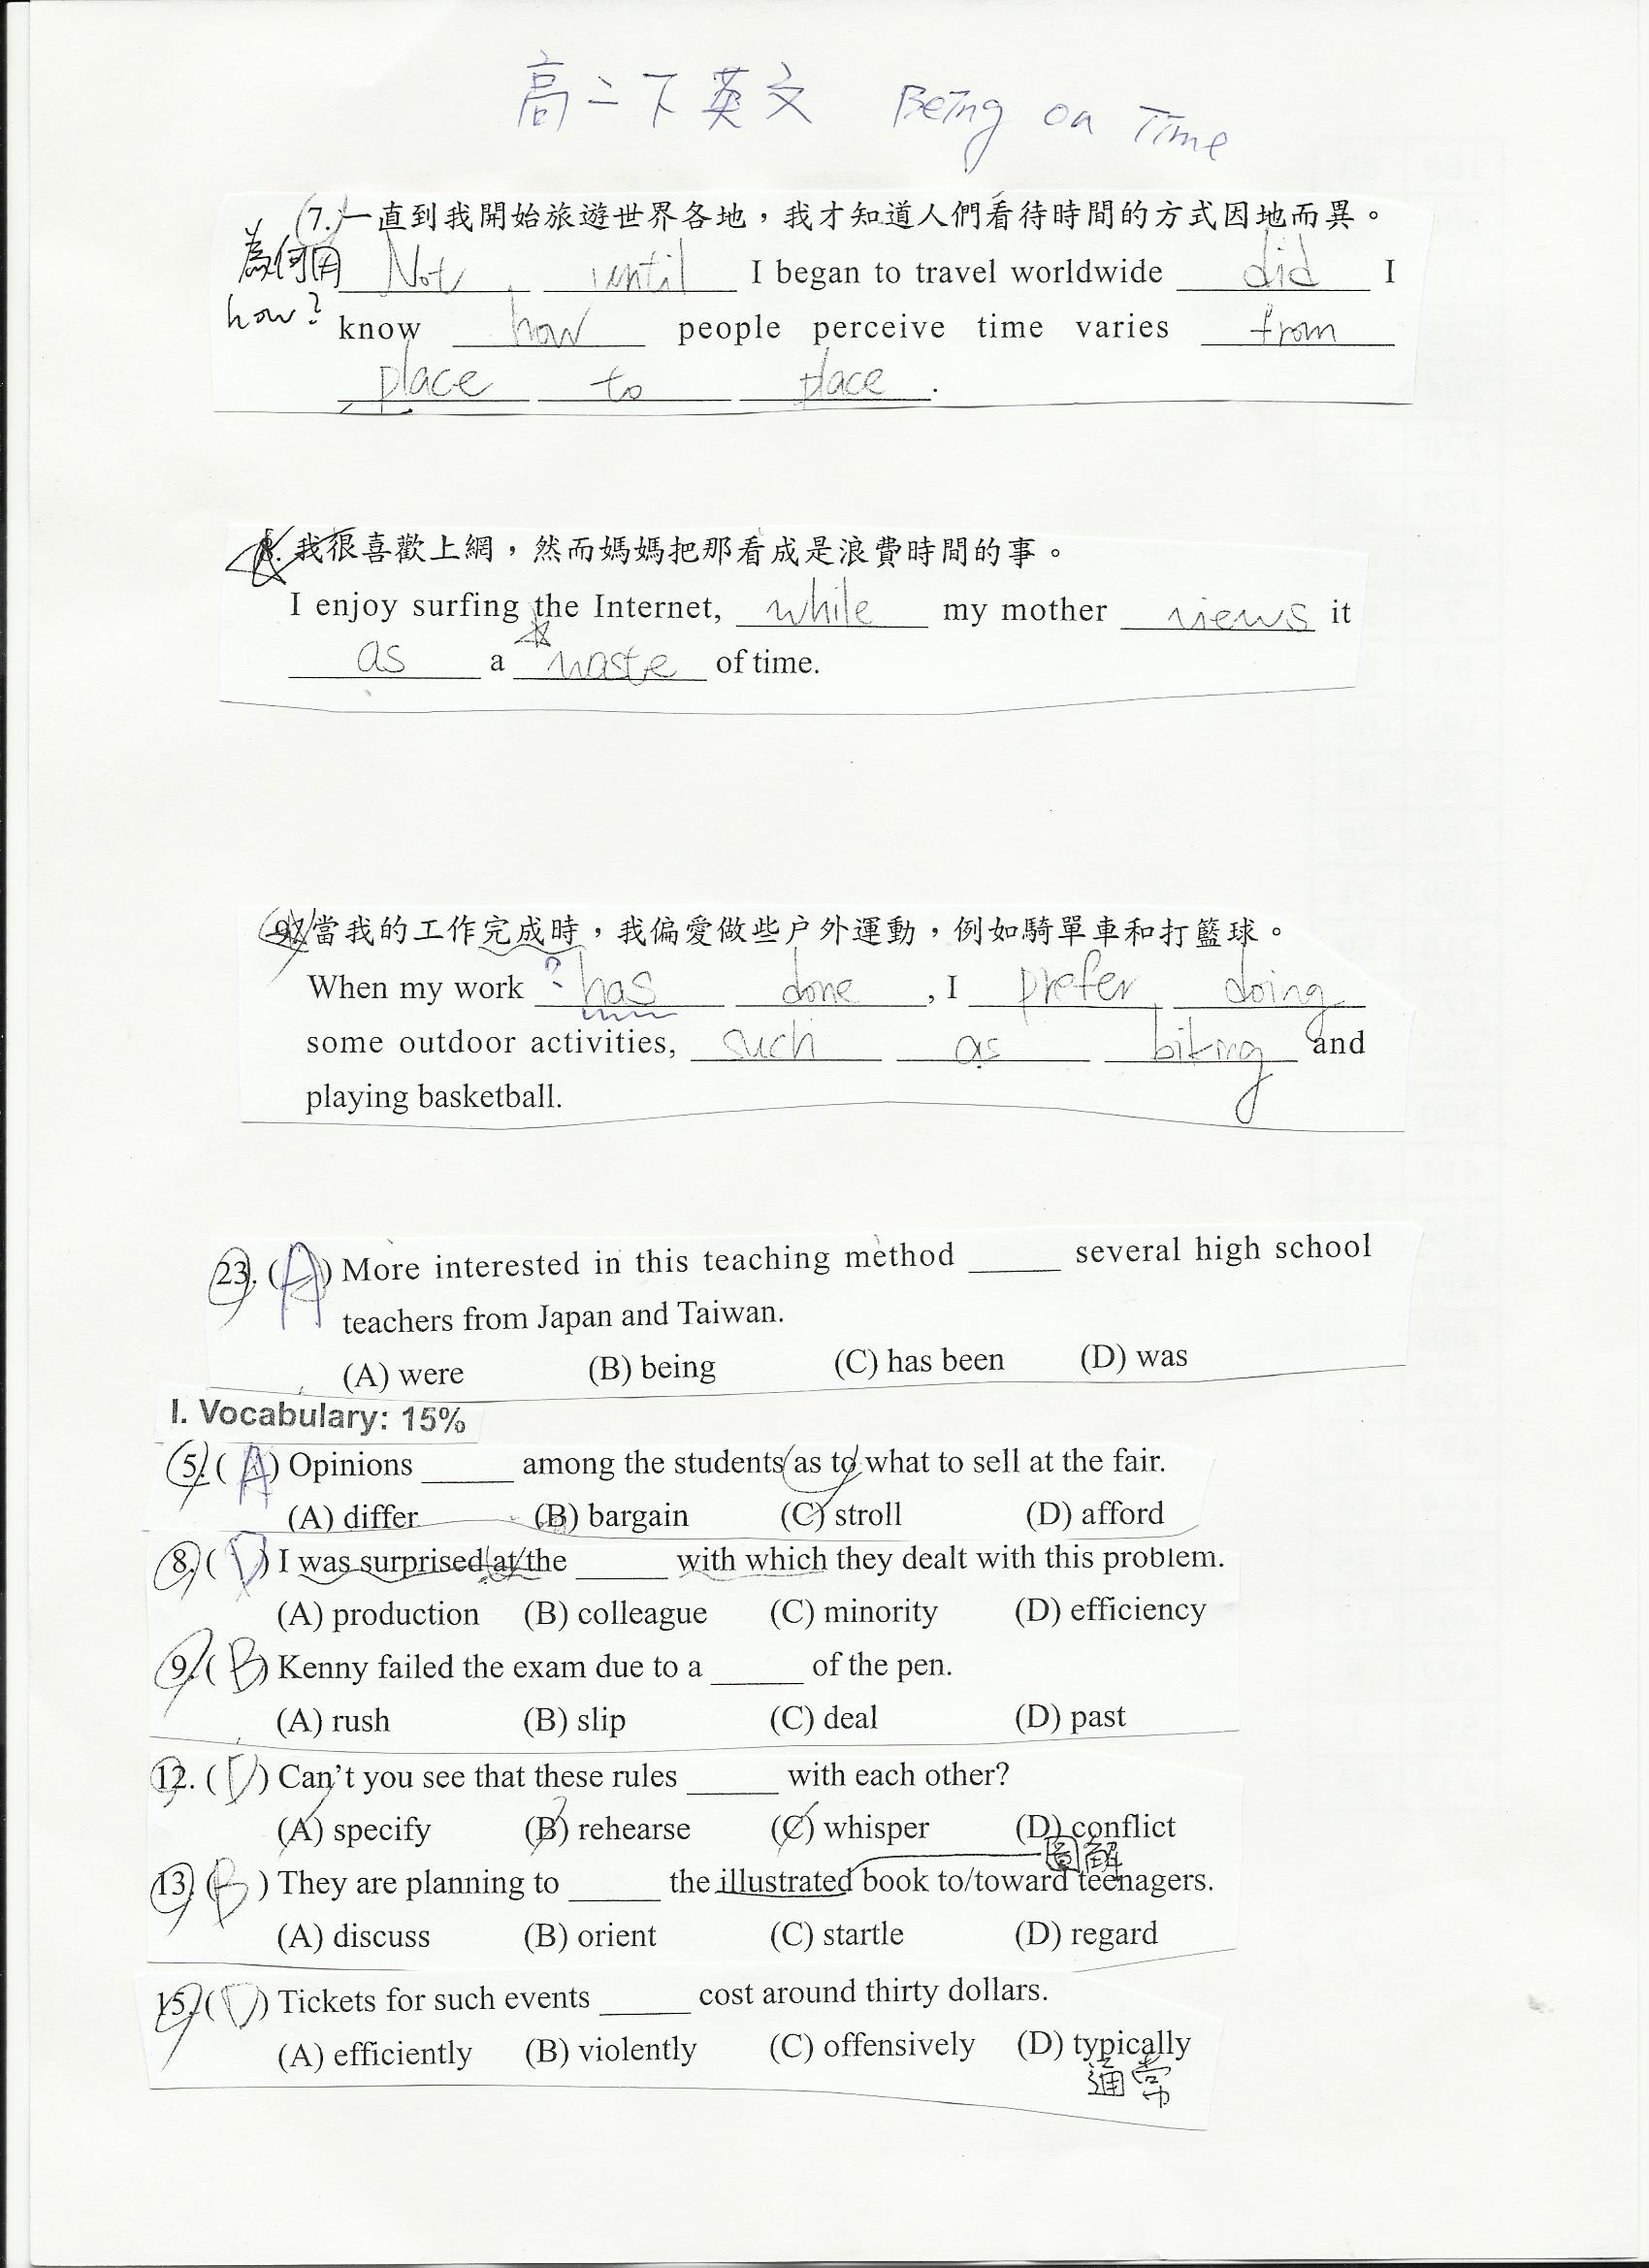 高二下英文 Being on Time
7. 一直到我開始旅遊世界各地，我才知道人們看待時間的方式因地而異。
為何用 Not until I began to travel worldwide did I
how? know how people perceive time varies from
place to place.
8. 我很喜歡上網，然而媽媽把那看成是浪費時間的事。
I enjoy surfing the Internet, while my mother views it
as a waste of time.
9. 當我的工作完成時，我偏愛做些戶外運動，例如騎單車和打籃球。
When my work ? has done, I prefer doing
some outdoor activities, such as biking and
playing basketball.
23. (A) More interested in this teaching method _____ several high school
teachers from Japan and Taiwan.
(A) were (B) being (C) has been (D) was
I. Vocabulary: 15%
5. (A) Opinions _____ among the students as to what to sell at the fair.
(A) differ (B) bargain (C) stroll (D) afford
8. (D) I was surprised at the _____ with which they dealt with this problem.
(A) production (B) colleague (C) minority (D) efficiency
9. (B) Kenny failed the exam due to a _____ of the pen.
(A) rush (B) slip (C) deal (D) past
12. (D) Can't you see that these rules _____ with each other?
(A) specify (B) rehearse (C) whisper (D) conflict
圖解
13. (B) They are planning to _____ the illustrated book to/toward teenagers.
(A) discuss (B) orient (C) startle (D) regard
15. (D) Tickets for such events _____ cost around thirty dollars.
(A) efficiently (B) violently (C) offensively (D) typically
通常